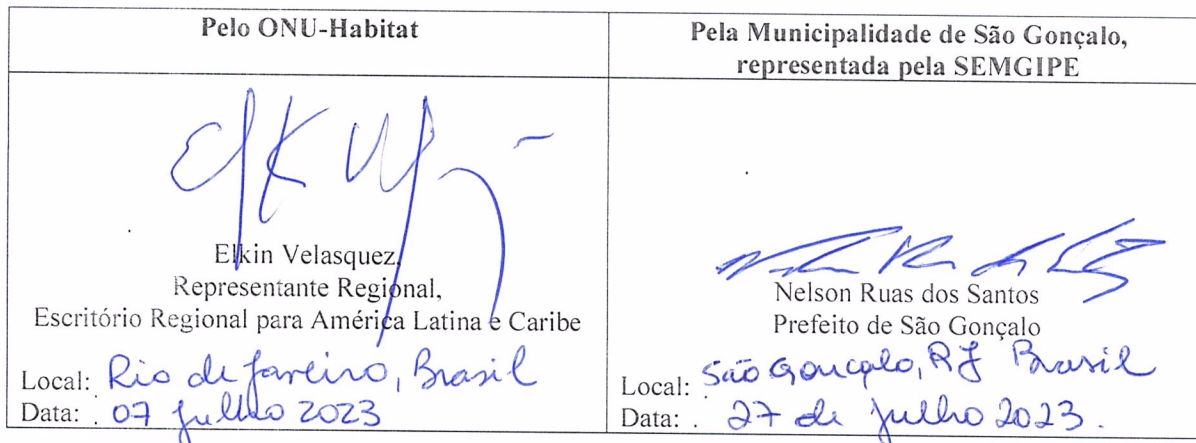 Pelo ONU-Habitat
Pela Municipalidade de São Gonçalo,
representada pela SEMGIPE
Elkin Velasquez,
Representante Regional,
Escritório Regional para América Latina e Caribe
Local: Rio de Janeiro, Brasil
Data: . 07 Julho 2023
Nelson Ruas dos Santos
Prefeito de São Gonçalo
Local: São Gonçalo, RJ Brasil
Data: . 27 de Julho 2023.